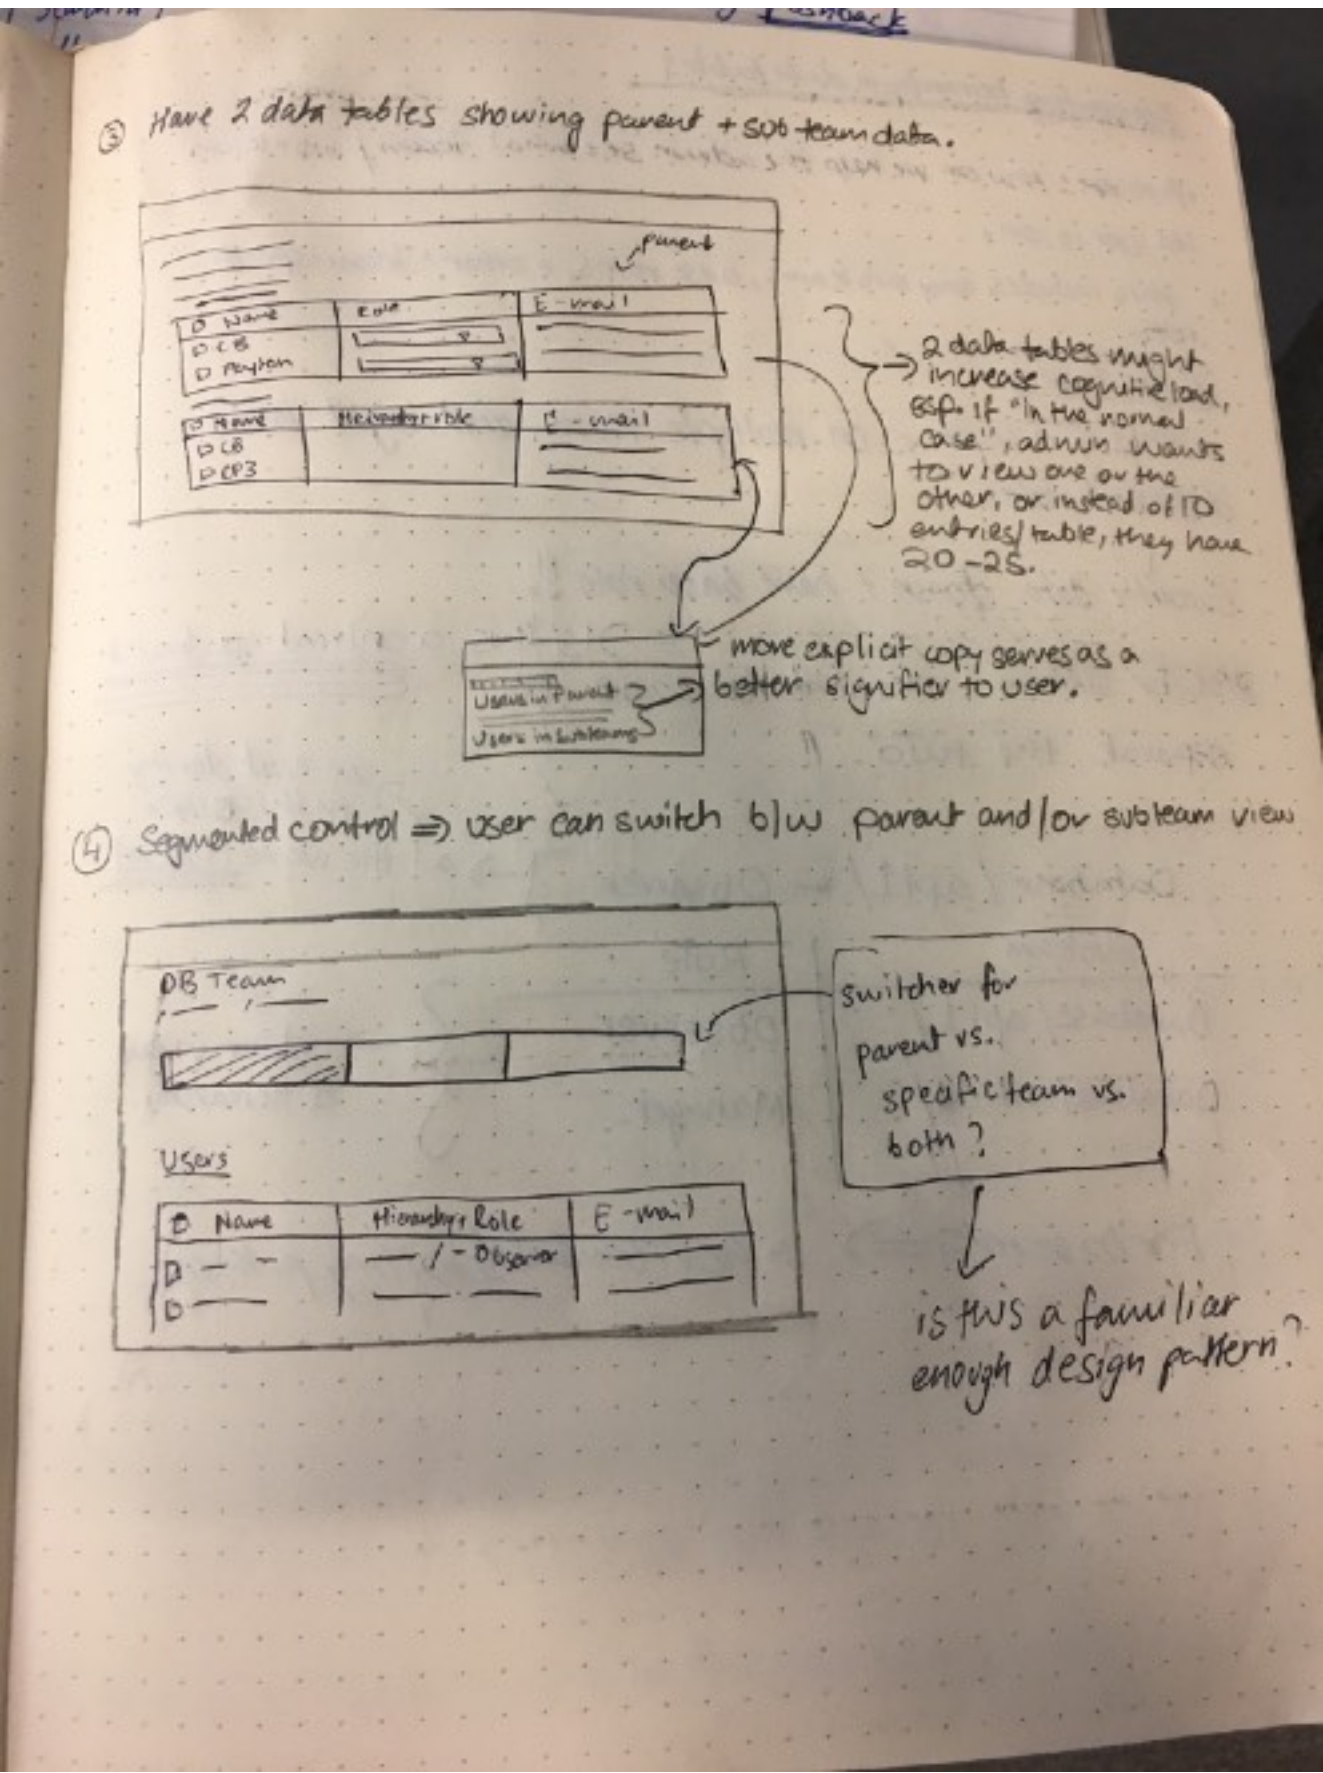 pushback
③ Have 2 data tables showing parent + sub team data.
parent
Name Role E-mail
CB
Payton
Name Hierarchy+role E-mail
CB
CP3
→ 2 data tables might
increase cognitive load,
esp. if "in the normal
case", admin wants
to view one or the
other, or instead of 10
entries/table, they have
20-25.
Users in Parent
Users in Subteams
more explicit copy serves as a
better signifier to user.
④ Segmented control ⇒ user can switch b/w parent and/or subteam view
DB Team
switcher for
parent vs.
specific team vs.
both?
Users
Name Hierarchy+Role E-mail
/ - Observer
is this a familiar
enough design pattern?